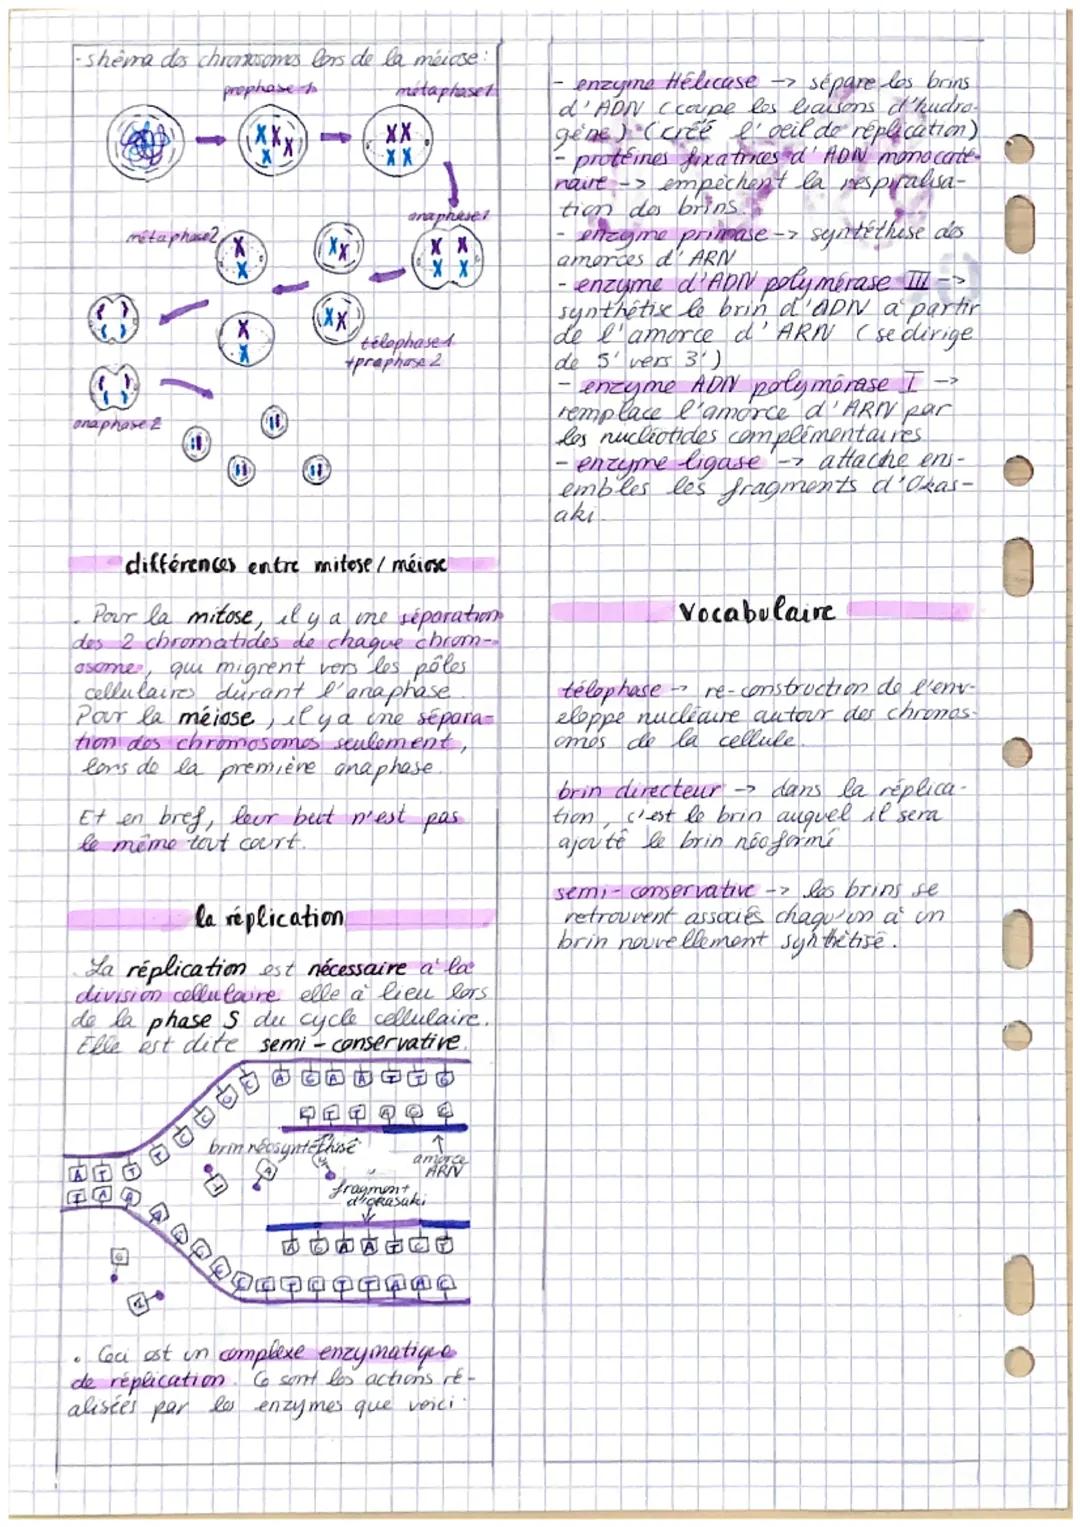 - shéma des chromosomes lors de la méiose:
prophase 1
métaphase 1
anaphase 1
métaphase 2
télophase 1
+ praphase 2
anaphase 2
différences entre mitose / méiose
. Pour la mitose, il y a une séparation
des 2 chromatides de chaque chrom-
osome, qui migrent vers les pôles
cellulaires durant l'anaphase.
Pour la méiose, il y a une sépara-
tion des chromosomes seulement,
lors de la première anaphase.
Et en bref, leur but n'est pas
le même tout court.
la réplication
. La réplication est nécessaire à la
division cellulaire elle à lieu lors
de la phase S du cycle cellulaire.
Elle est dite semi-conservative.
brin néosynthétisé
amorce
ARN
fragment
d'okasaki
. Ceci est un complexe enzymatique
de réplication. Ce sont les actions ré-
alisées par les enzymes que voici:
- enzyme Hélicase -> sépare les brins
d'ADN (coupe les liaisons d'hudro-
gène) (créé l'oeil de réplication)
- protéines fixatrices d'ADN monocaté-
naire -> empêchent la respiralisa-
tion des brins.
- enzyme primase -> syntéthise des
amorces d'ARN
- enzyme d'ADN polymérase III ->
synthétise le brin d'ADN à partir
de l'amorce d'ARN (se dirige
de 5' vers 3')
- enzyme ADN polymérase I ->
remplace l'amorce d'ARN par
les nucléotides complémentaires
- enzyme ligase -> attache ens-
embles les fragments d'Okas-
aki.
Vocabulaire
télophase -> re-construction de l'env-
eloppe nucléaire autour des chromos-
omes de la cellule.
brin directeur -> dans la réplica-
tion, c'est le brin auquel il sera
ajouté le brin néoformé
semi-conservative -> les brins se
retrouvent associés chaqu'un à un
brin nouvellement synthétisé.